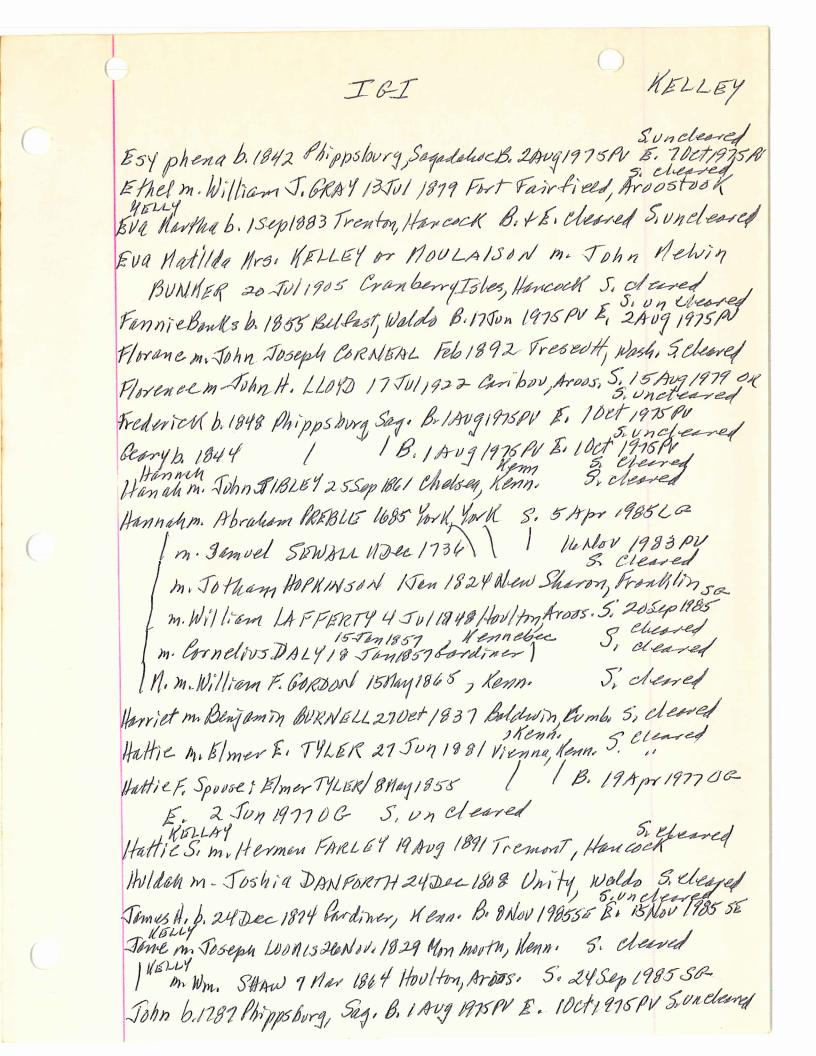 IGI KELLEY
S. uncleared
Esyphena b. 1842 Phippsburg, Sagadahoc B. 2 Aug 1975 PV E. 7 Oct 1975 PV
S. cleared
Ethel m. William J. GRAY 13 Jul 1879 Fort Fairfield, Aroostook
KELLY
Eva Martha b. 1 Sep 1883 Trenton, Hancock B. & E. cleared S. uncleared
Eva Matilda Mrs. KELLEY or MOULAISON m. John Melvin
BUNKER 20 Jul 1905 Cranberry Isles, Hancock S. cleared
S. un cleared
Fannie Banks b. 1855 Belfast, Waldo B. 17 Jun 1975 PV E. 2 Aug 1975 PV
Florane m. John Joseph CORNEAL Feb 1892 Trescott, Wash. S. cleared
Florence m. John H. LLOYD 17 Jul 1922 Caribou, Aroos. S. 15 Aug 1979 OK
S. uncleared
Frederick b. 1848 Phippsburg, Sag. B. 1 Aug 1975 PV E. 1 Oct 1975 PV
S. uncleared
Geary b. 1844 | | B. 1 Aug 1975 PV E. 1 Oct 1975 PV
Hannah Kenn S. cleared
Hanah m. John SIBLEY 25 Sep 1861 Chelsea, Kenn. S. cleared
Hannah m. Abraham PREBLE 1685 York, York S. 5 Apr 1985 LG
m. Samuel SEWALL 11 Dec 1736 \ \ | 16 Nov 1983 PV
S. cleared
m. Jotham HOPKINSON 1 Jan 1824 New Sharon, Franklin
m. William LAFFERTY 4 Jul 1848 Houlton, Aroos. S. 20 Sep 1985 SG
15 Jan 1857 , Kennebec S. cleared
m. Cornelius DALY 18 Jan 1857 Gardiner S. cleared
M. m. William F. GORDON 15 May 1865 , Kenn. S. cleared
Harriet m. Benjamin BURNELL 27 Oct 1837 Baldwin, Cumb. S. cleared
, Kenn. S. cleared
Hattie m. Elmer E. TYLER 27 Jun 1881 Vienna, Kenn. S. "
Hattie F. Spouse: Elmer TYLER/ 8 May 1855 | | B. 19 Apr 1977 OG
E. 2 Jun 1977 OG S. un cleared
KELLAY S. cleared
Hattie S. m. Herman FARLEY 19 Aug 1891 Tremont, Hancock
Huldah m. Joshia DANFORTH 24 Dec 1808 Unity, Waldo S. cleared
S. uncleared
James H. b. 24 Dec 1874 Gardiner, Kenn. B. 8 Nov 1985 SE E. 15 Nov 1985 SE
KELLY
Jane m. Joseph LOOMIS 26 Nov. 1829 Monmouth, Kenn. S. cleared
KELLY
| m. Wm. SHAW 7 Mar 1864 Houlton, Aroos. S. 24 Sep 1985 SG
John b. 1787 Phippsburg, Sag. B. 1 Aug 1975 PV E. 1 Oct, 1975 PV S. uncleared